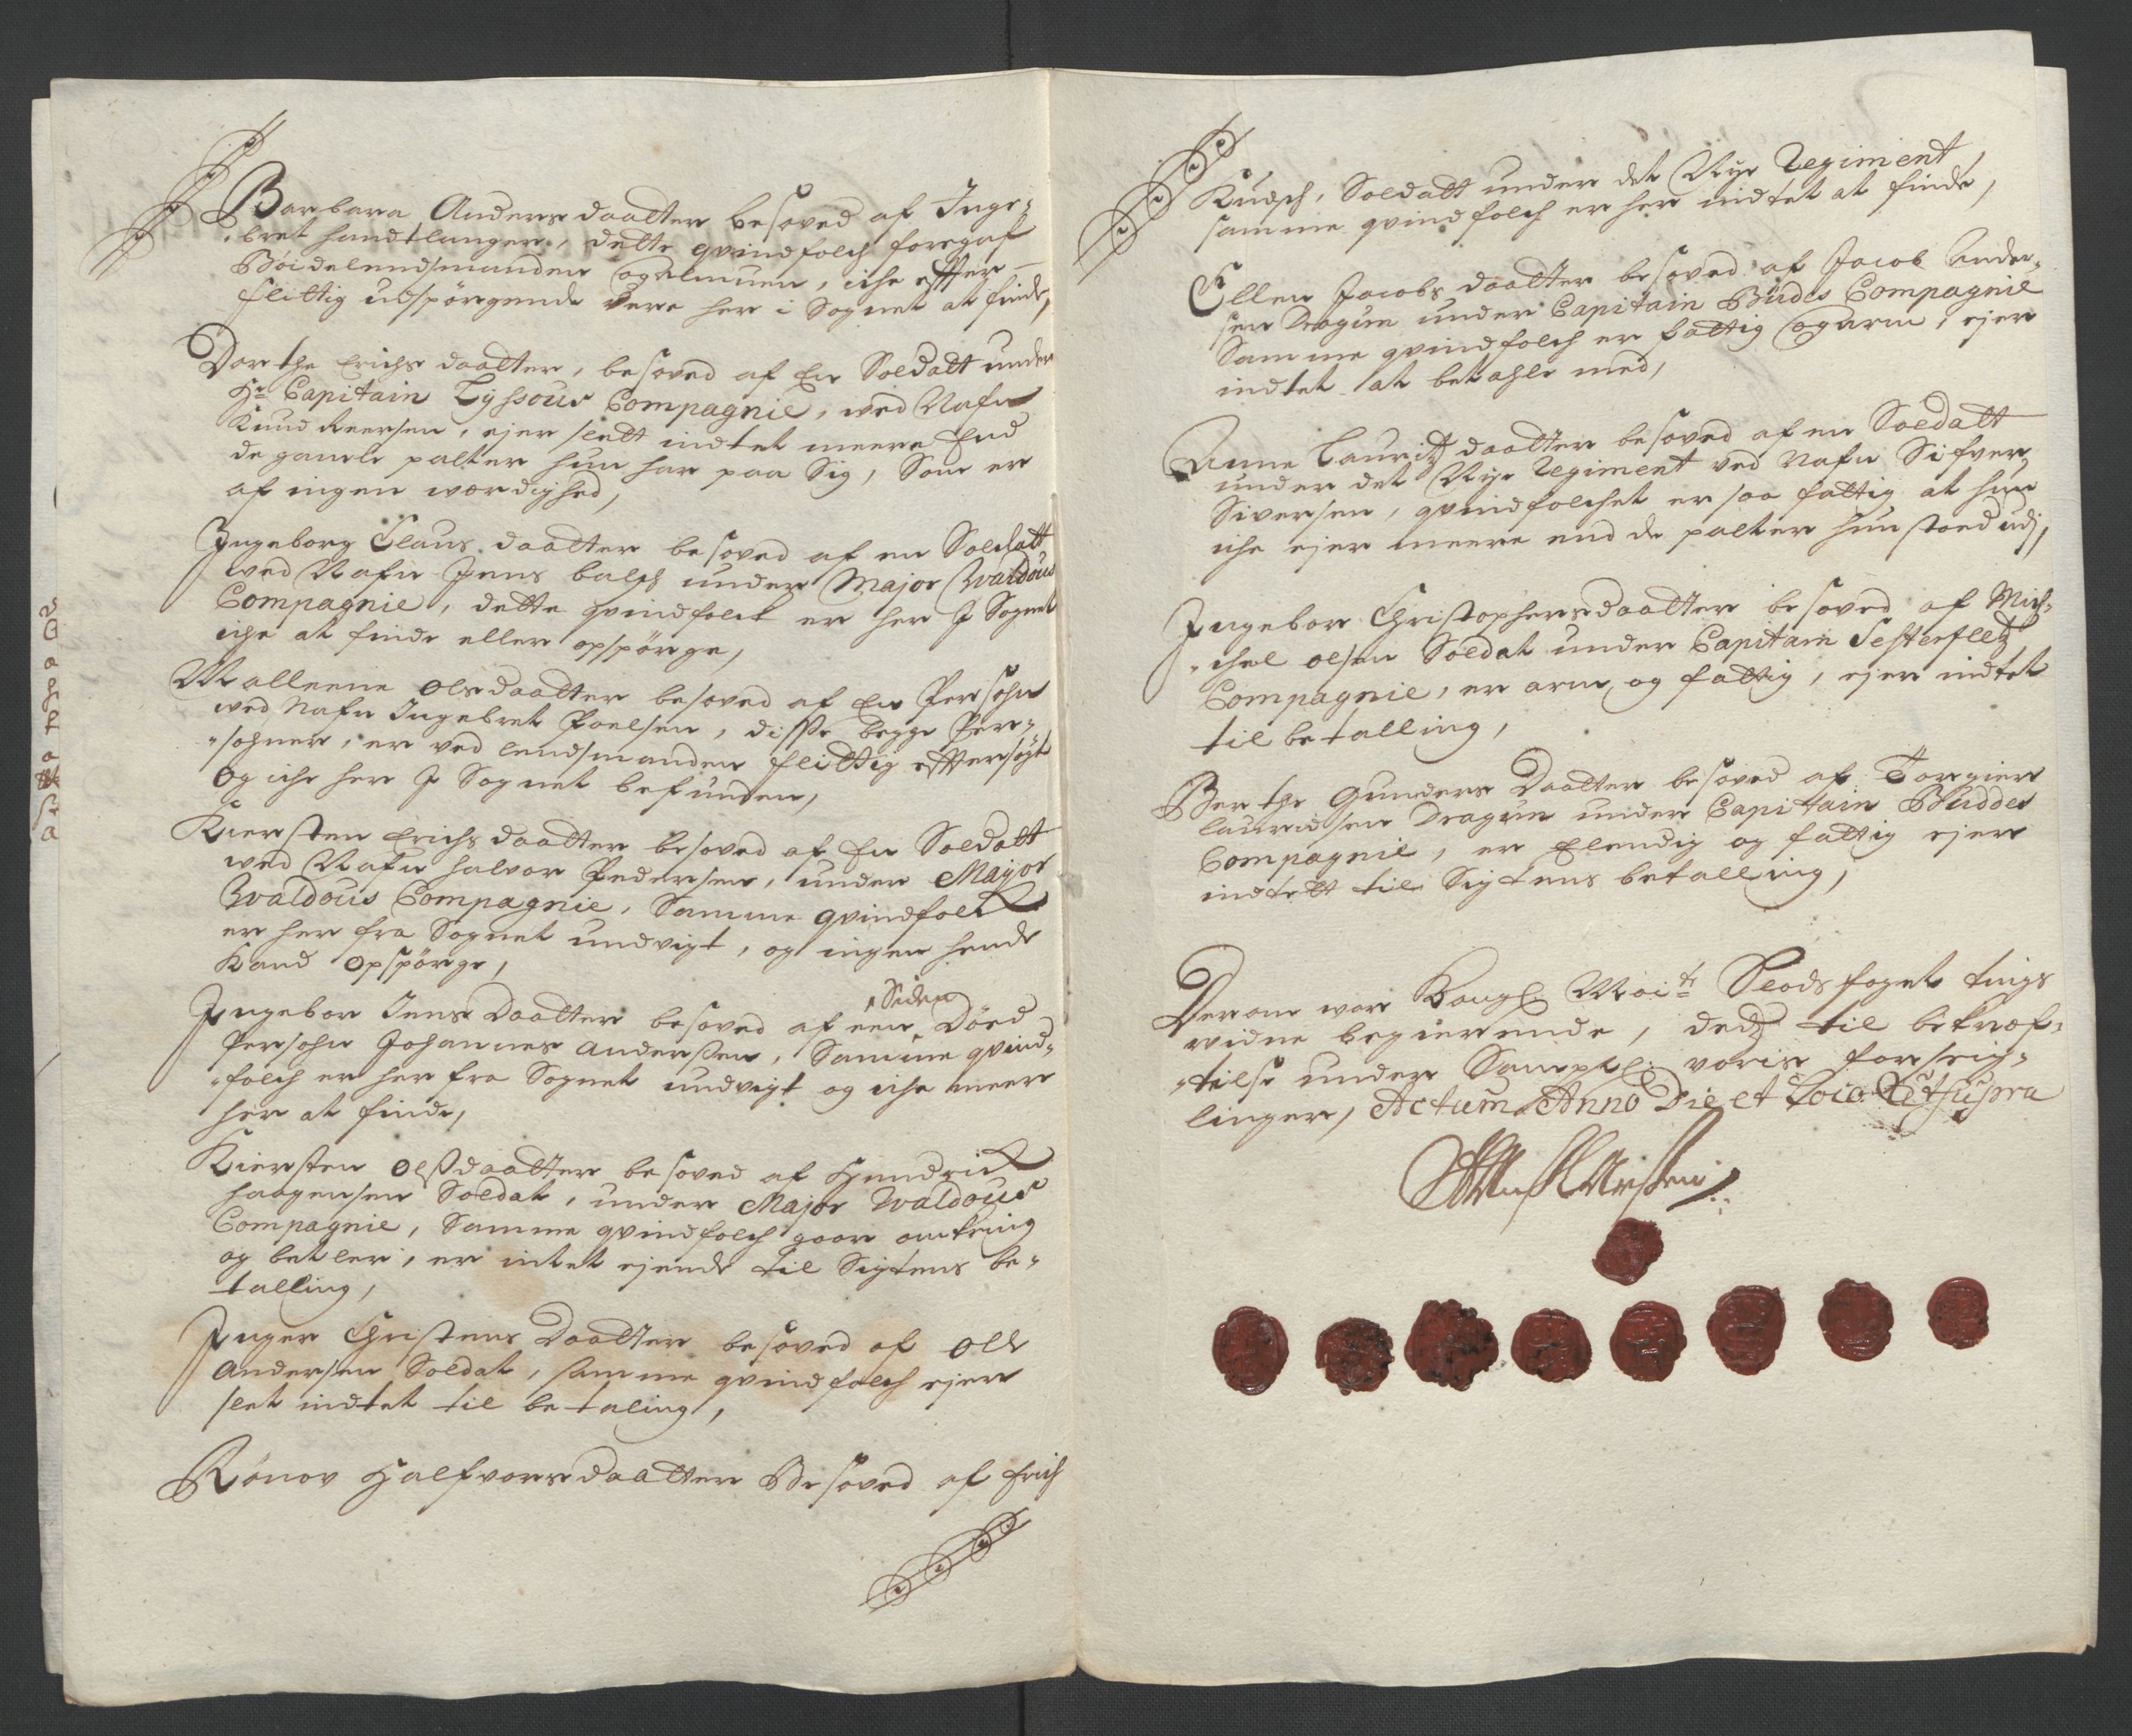 Barbara Anders daatter besoved af Inge-
bret handtlanger, dette qvindfolch foregaf
Böidelendsmanden og almuen, iche effter
flittig udspörgende vere her i Sognet at finde,
Dorthe Erichs daatter, besoved af En Soldatt under
Hr Capitain Lyssous Compagnie, ved Nafn
Knud Reersen, ejer slett indtet meere End
de gamle palter hun har paa Sig, Som er
af ingen werdighed,
Ingeborg Claus daatter besoved af en Soldatt
ved Nafn Jens balch under Major Waldous
Compagnie, dette qvindfolck er her J Sognet
iche at finde eller opspörge,
Malleene Olsdaatter besoved af En Persohn
ved Nafn Ingebret Poelsen, disse begge Per-
sohner, er ved lendsmanden flittig efftersögt
og iche her J Sognet befunden,
Kiersten Erichs daatter besoved af En Soldatt
ved Nafn halvor Pedersen, under Major
Waldous Compagnie, Samme qvindfolck
er her fra Sognet undvigt, og ingen hende
Kand opspörge,
Ingebor Jens Daatter besoved af een Siden Döed
Persohn Johannes Andersen, Samme qvind-
folch er her fra Sognet undvigt og iche meere
her at finde,
Kiersten Olsdaatter besoved af Hendrick
haagensen Soldat, under Major Waldous
Compagnie, Samme qvindfolch gaar omkring
og betler, er intet ejende til Sigtens be-
talling,
Inger Christens Daatter besoved af Ole
Andersen Soldat, samme qvindfolch ejer
slet indtet til betaling,
Rönov Halfvors daatter Besoved af Erich
Knudsh, Soldatt under det Nye Regiment,
samme qvindfolch er her indtet at finde,
Ellen Jacobs daatter besoved af Jacob Ander-
sen Dragun under Capitain Budes Compagnie
Samme qvindfolch er fattig og arm, ejer
indtet at betahle med,
Anne Lauritz daatter besoved af en Soldatt
under det Nye Regiment ved Nafn Sifver
Siversen, qvindfolchet er saa fattig at hun
iche ejer meere end de palter hun stoed udj,
Ingebor Christophersdaatter besoved af Mich-
chel olsen Soldat under Capitain Sesterfletz
Compagnie, er arm og fattig, ejer indtet
til betalling,
Berthe Gunders Daatter besoved af Torgier
lauridsen Dragun under Capitain Buddes
Compagnie, er Elendig og fattig ejer
indtett til Sigtens betalling,
Derom war Kongl. Mai:ts Slodsfoget tings
vidne begierende, dedz til bekræf-
telse under Samptl. voris forseig-
linger, Actum Anno Die et Loco Ut supra